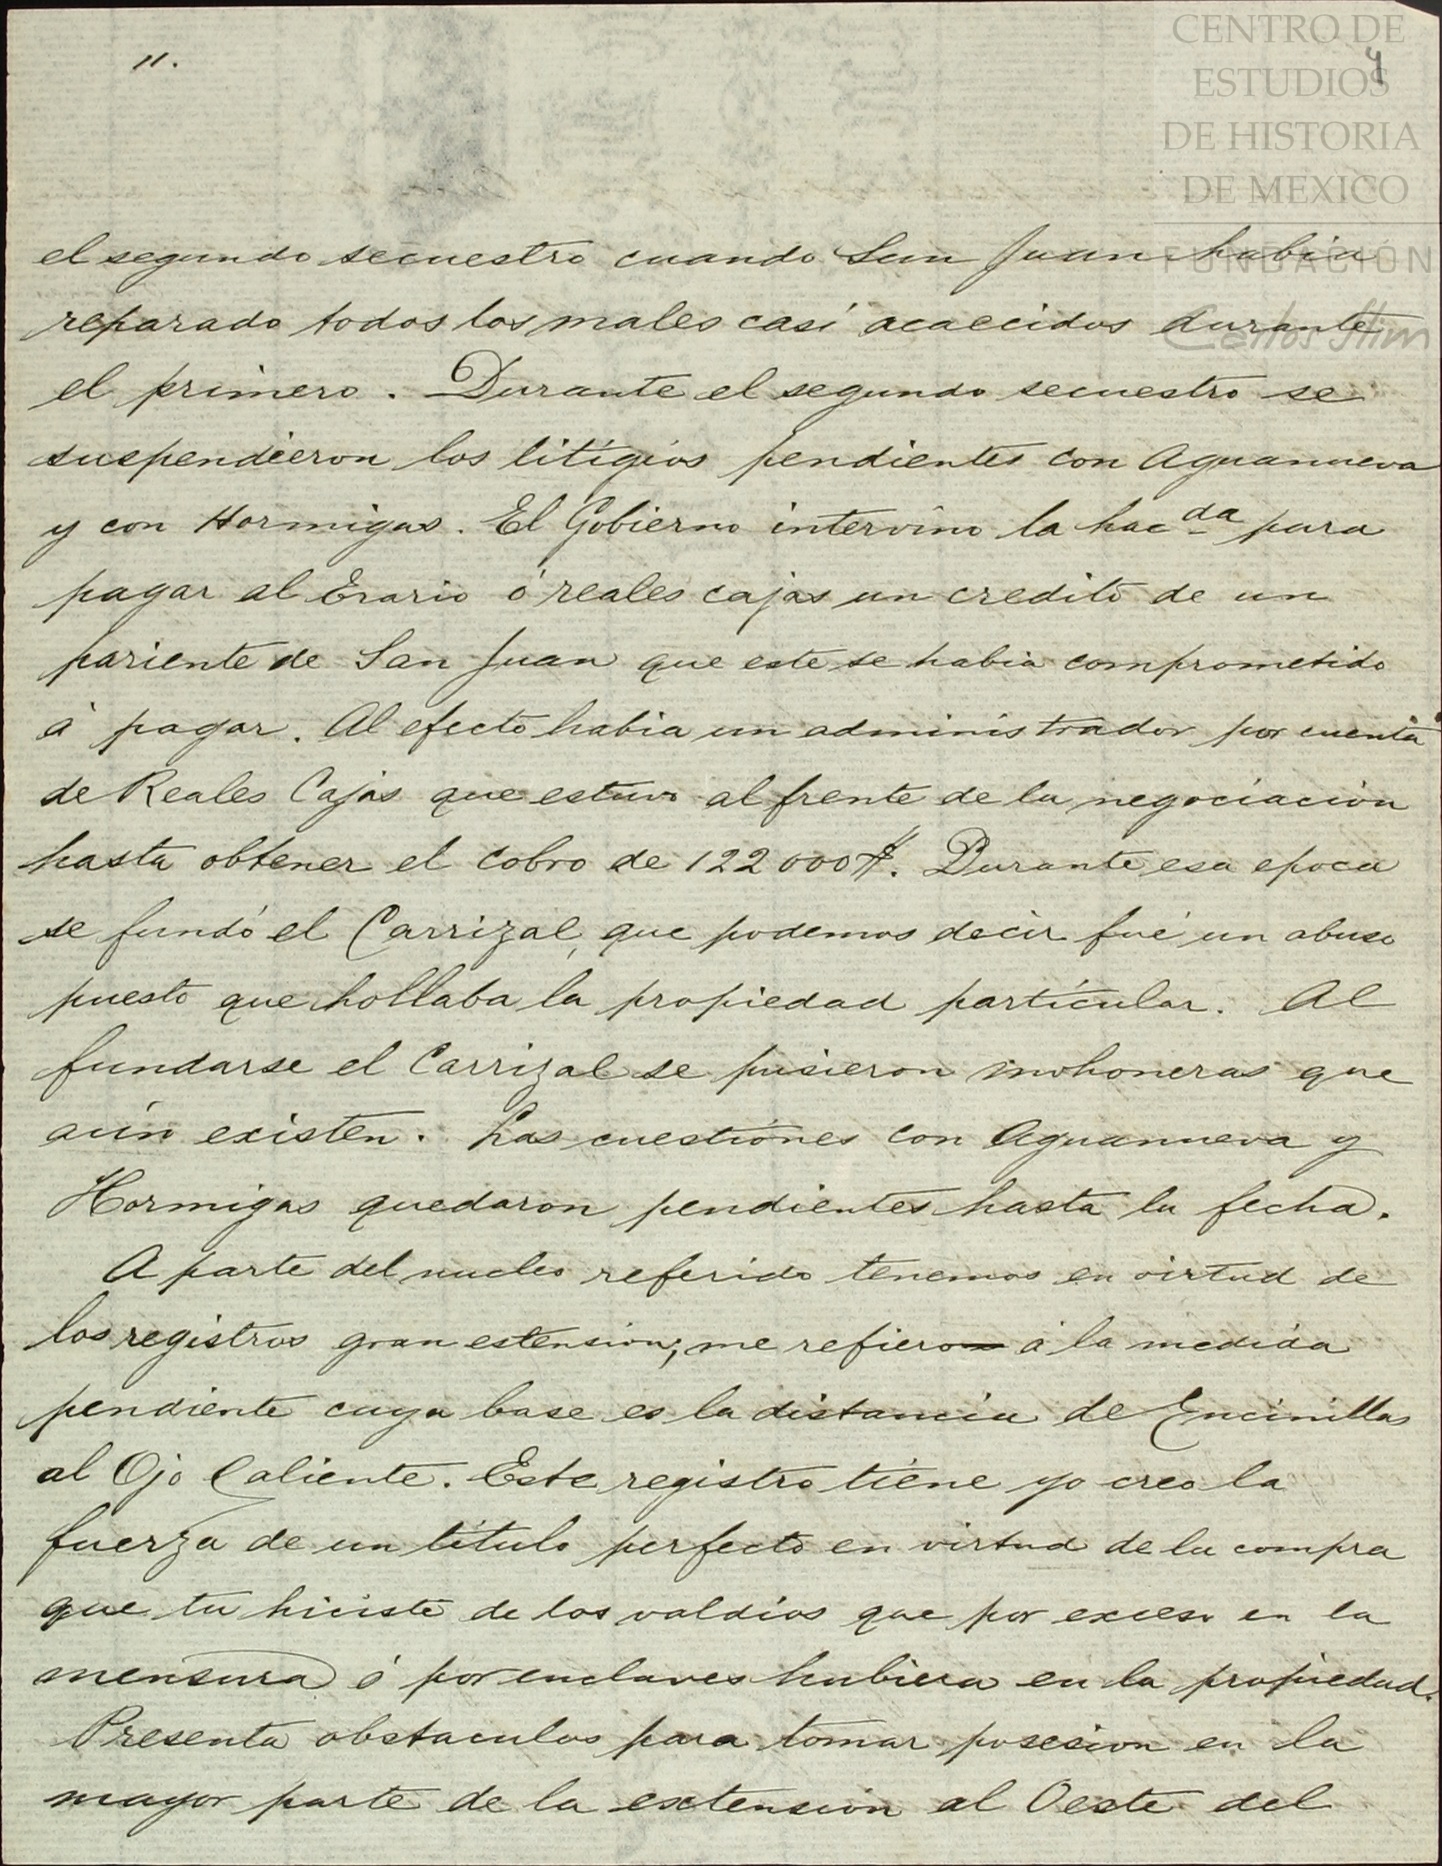 11.
4
CENTRO DE
ESTUDIOS
DE HISTORIA
DE MEXICO
FUNDACIÓN
Carlos Slim
el segundo secuestro cuando San Juan habia
reparado todos los males casi acaecidos durante
el primero. Durante el segundo secuestro se
suspendieron los litigios pendientes con Aguanueva
y con Hormigas. El Gobierno intervino la hacda para
pagar al Erario ó reales cajas un credito de un
pariente de San Juan que este se habia comprometido
á pagar. Al efecto habia un administrador por cuenta
de Reales Cajas que estuvo al frente de la negociacion
hasta obtener el cobro de 122000$. Durante esa epoca
se fundó el Carrizal, que podemos decir fué un abuso
puesto que hollaba la propiedad particular. Al
fundarse el Carrizal se pusieron mohoneras que
aún existen. Las cuestiones con Aguanueva y
Hormigas quedaron pendientes hasta la fecha.
A parte del nucleo referido tenemos en virtud de
los registros gran estension; me refiero á la medida
pendiente cuya base es la distancia de Encinillas
al Ojo Caliente. Este registro tiene yo creo la
fuerza de un titulo perfecto en virtud de la compra
que tu hiciste de los valdios que por exceso en la
mensura ó por enclaves hubiera en la propiedad.
Presenta obstaculos para tomar posesion en la
mayor parte de la extension al Oeste del